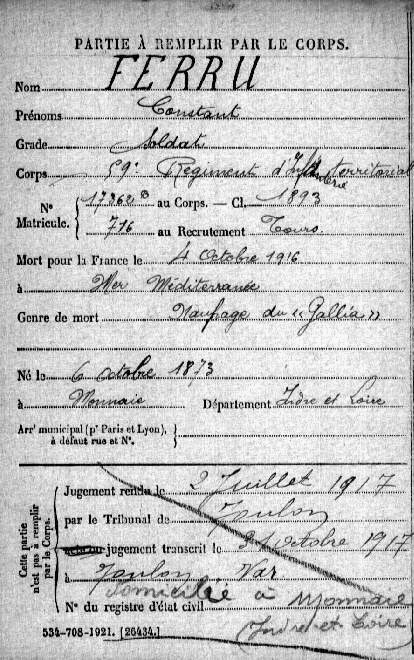 PARTIE À REMPLIR PAR LE CORPS.
Nom FERRU
Prénoms Constant
Grade Soldat
Corps 59e Régiment d'Infanterie territorial
No Matricule. 17362 au Corps. — Cl. 1893
716 au Recrutement Tours
Mort pour la France le 4 Octobre 1916
à Mer Méditerranée
Genre de mort Naufrage du "Gallia"
Né le 6 octobre 1873
à Monnaie Département Indre et Loire
Arrt municipal (pr Paris et Lyon), à défaut rue et No.
Cette partie n'est pas à remplir par le Corps.
Jugement rendu le 2 Juillet 1917
par le Tribunal de Toulon
jugement transcrit le 31 Octobre 1917
à Toulon Var
domicilié à Monnaie
No du registre d'état civil
(Indre et Loire
534-708-1921. [26434.]